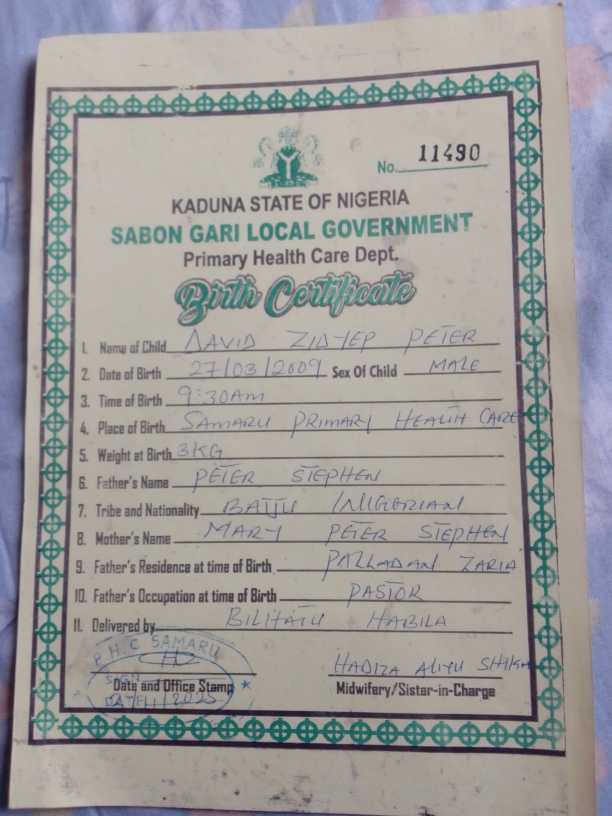 No. 11490
KADUNA STATE OF NIGERIA
SABON GARI LOCAL GOVERNMENT
Primary Health Care Dept.
Birth Certificate
1. Name of Child DAVID ZIDYEP PETER
2. Date of Birth 27/03/2009 Sex Of Child MALE
3. Time of Birth 9:30AM
4. Place of Birth SAMARU PRIMARY HEALTH CARE
5. Weight at Birth 3KG
6. Father's Name PETER STEPHEN
7. Tribe and Nationality BAJJU /NIGERIAN
8. Mother's Name MARY PETER STEPHEN
9. Father's Residence at time of Birth PALLADAN ZARIA
10. Father's Occupation at time of Birth PASTOR
11. Delivered by BILIHATU HABILA
P.H.C SAMARU
SIGN
DATE
Date and Office Stamp
HADIZA ALIYU SHIKA
Midwifery/Sister-in-Charge